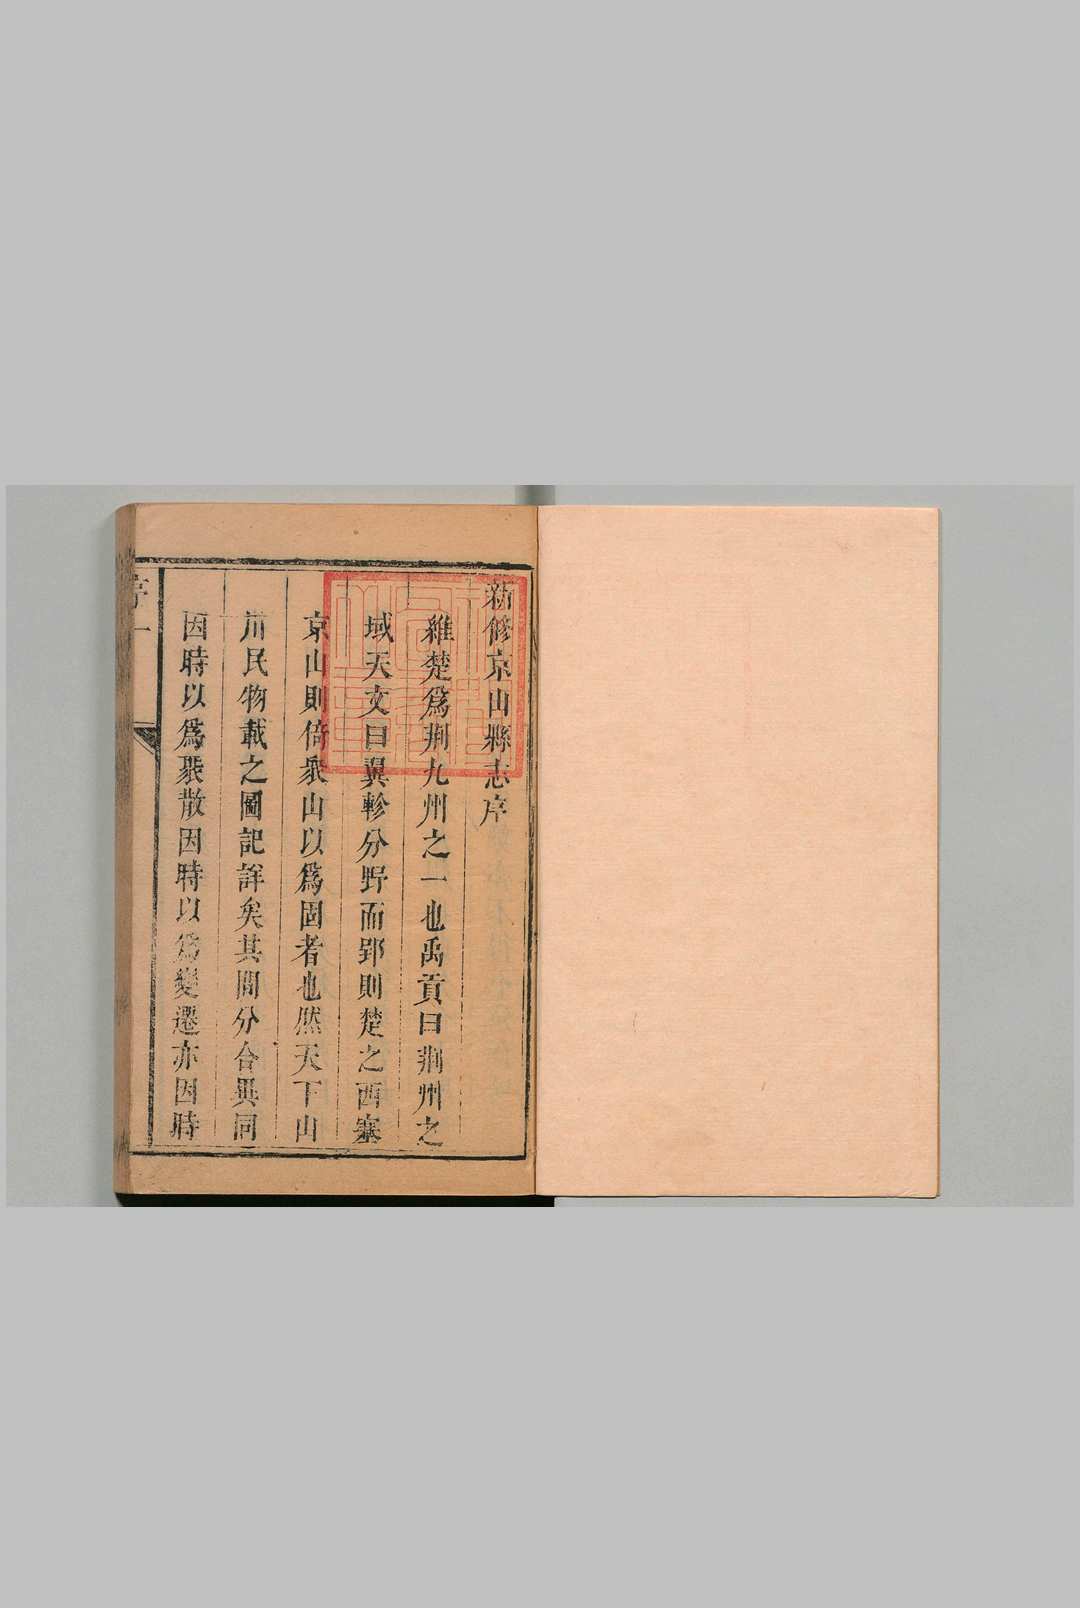 新修京山縣志序
維楚爲荆九州之一也禹貢曰荆州之
域天文曰翼軫分野而郢則楚之西塞
京山則倚衆山以爲固者也然天下山
川民物載之圖記詳矣其間分合異同
因時以爲聚散因時以爲變遷亦因時
序一